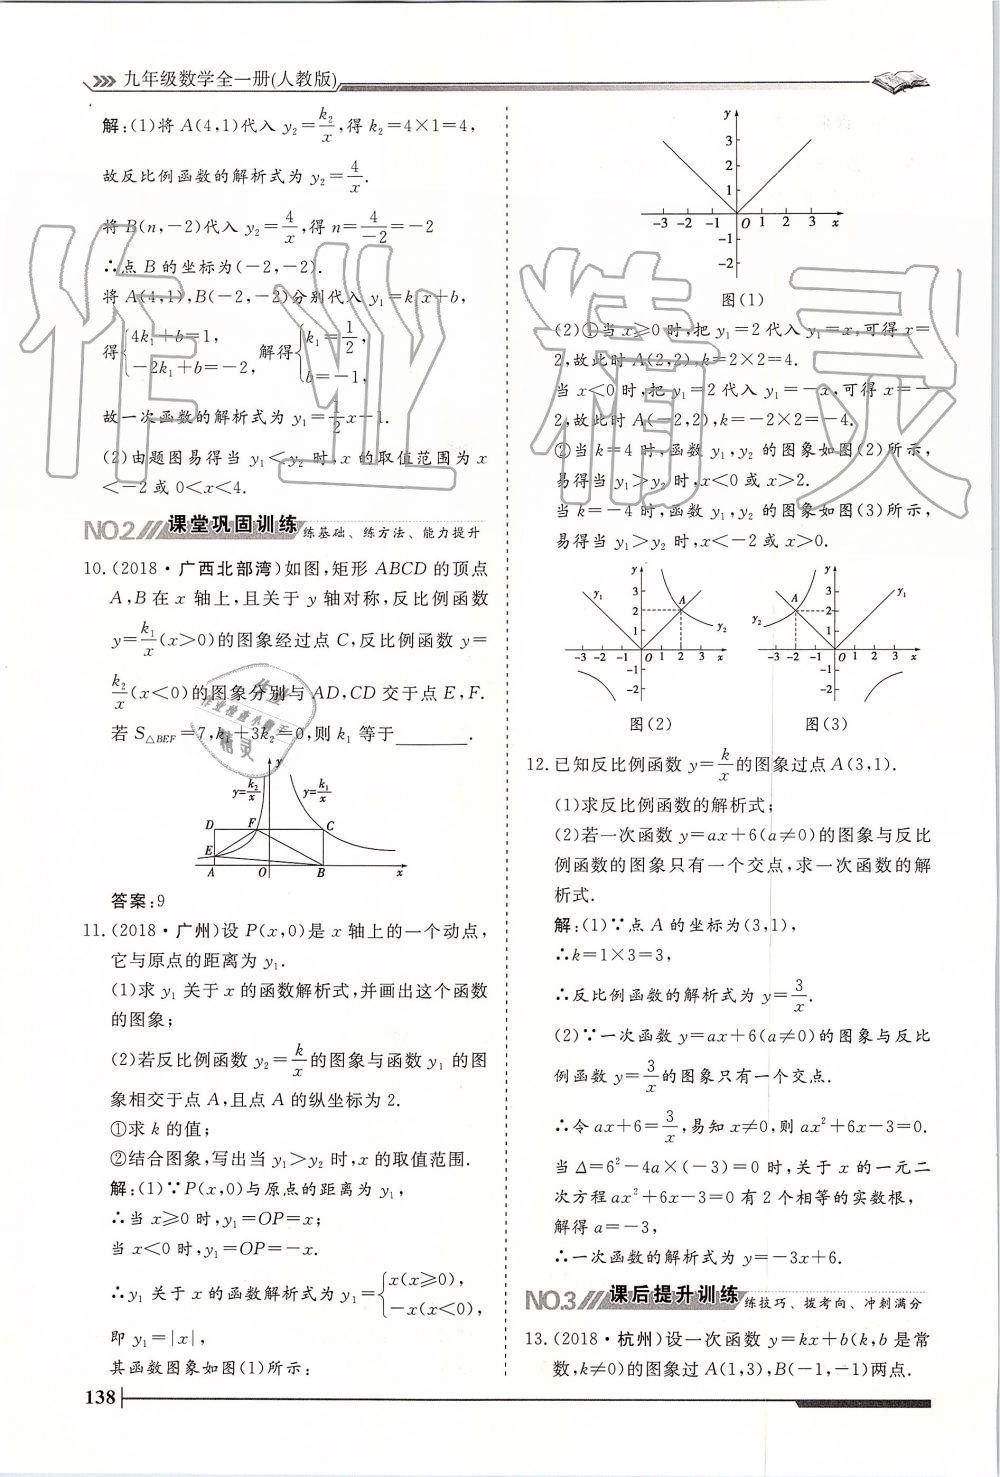 九年级数学全一册(人教版)
解:(1)将 A(4,1)代入 y₂=k₂/x,得 k₂=4×1=4,
故反比例函数的解析式为 y₂=4/x.
将 B(n,-2)代入 y₂=4/x,得 n=4/-2=-2
∴点 B 的坐标为(-2,-2).
将 A(4,1),B(-2,-2)分别代入 y₁=k₁x+b,
得{4k₁+b=1, -2k₁+b=-2, 解得{k₁=1/2, b=-1,
故一次函数的解析式为 y₁=1/2x-1.
(2)由题图易得当 y₁<y₂ 时,x 的取值范围为 x
<-2 或 0<x<4.
NO.2 课堂巩固训练 练基础、练方法、能力提升
10.(2018·广西北部湾)如图,矩形 ABCD 的顶点
A,B 在 x 轴上,且关于 y 轴对称,反比例函数
y=k₁/x(x>0)的图象经过点 C,反比例函数 y=
k₂/x(x<0)的图象分别与 AD,CD 交于点 E,F.
若 S△BEF=7,k₁+3k₂=0,则 k₁ 等于________.
y
y=k₂/x y=k₁/x
D F C
E
A O B x
答案:9
11.(2018·广州)设 P(x,0)是 x 轴上的一个动点,
它与原点的距离为 y₁.
(1)求 y₁ 关于 x 的函数解析式,并画出这个函数
的图象;
(2)若反比例函数 y₂=k/x的图象与函数 y₁ 的图
象相交于点 A,且点 A 的纵坐标为 2.
①求 k 的值;
②结合图象,写出当 y₁>y₂ 时,x 的取值范围.
解:(1)∵P(x,0)与原点的距离为 y₁,
∴当 x≥0 时,y₁=OP=x;
当 x<0 时,y₁=OP=-x.
∴y₁ 关于 x 的函数解析式为 y₁={x(x≥0), -x(x<0),
即 y₁=|x|,
其函数图象如图(1)所示:
138
y
3
2
1
-3 -2 -1 O 1 2 3 x
-1
-2
图(1)
(2)①当 x≥0 时,把 y₁=2 代入 y₁=x,可得 x=
2,故此时 A(2,2),k=2×2=4.
当 x<0 时,把 y₁=2 代入 y₁=-x,可得 x=-
2,故此时 A(-2,2),k=-2×2=-4.
②当 k=4 时,函数 y₁,y₂ 的图象如图(2)所示,
易得当 y₁>y₂ 时,x<0 或 x>2.
当 k=-4 时,函数 y₁,y₂ 的图象如图(3)所示,
易得当 y₁>y₂ 时,x<-2 或 x>0.
y y
y₁ 3 A 3 y₁
2 A 2
1 y₂ y₂ 1
-3 -2 -1 O 1 2 3 x -3 -2 -1 O 1 2 3 x
-1 -1
-2 -2
图(2) 图(3)
12.已知反比例函数 y=k/x的图象过点 A(3,1).
(1)求反比例函数的解析式;
(2)若一次函数 y=ax+6(a≠0)的图象与反比
例函数的图象只有一个交点,求一次函数的解
析式.
解:(1)∵点 A 的坐标为(3,1),
∴k=1×3=3,
∴反比例函数的解析式为 y=3/x.
(2)∵一次函数 y=ax+6(a≠0)的图象与反比
例函数 y=3/x的图象只有一个交点.
∴令 ax+6=3/x,易知 x≠0,则 ax²+6x-3=0.
当 Δ=6²-4a×(-3)=0 时,关于 x 的一元二
次方程 ax²+6x-3=0 有 2 个相等的实数根,
解得 a=-3,
∴一次函数的解析式为 y=-3x+6.
NO.3 课后提升训练 练技巧、拨考向、冲刺满分
13.(2018·杭州)设一次函数 y=kx+b(k,b 是常
数,k≠0)的图象过 A(1,3),B(-1,-1)两点.
作业精灵